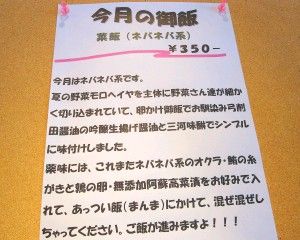 今月の御飯
菜飯（ネバネバ系）
￥３５０－
今月はネバネバ系です。
夏の野菜モロヘイヤを主体に野菜さん達が細か
く切り込まれていて、卵かけ御飯でお馴染み弓削
田醤油の吟醸生揚げ醤油と三河味醂でシンプル
に味付けしました。
薬味には、これまたネバネバ系のオクラ・鮪の糸
がきと鶉の卵・無添加阿蘇高菜漬をお好みで入
れて、あっつい飯（まんま）にかけて、混ぜ混ぜし
ちゃってください。ご飯が進みますよ！！！